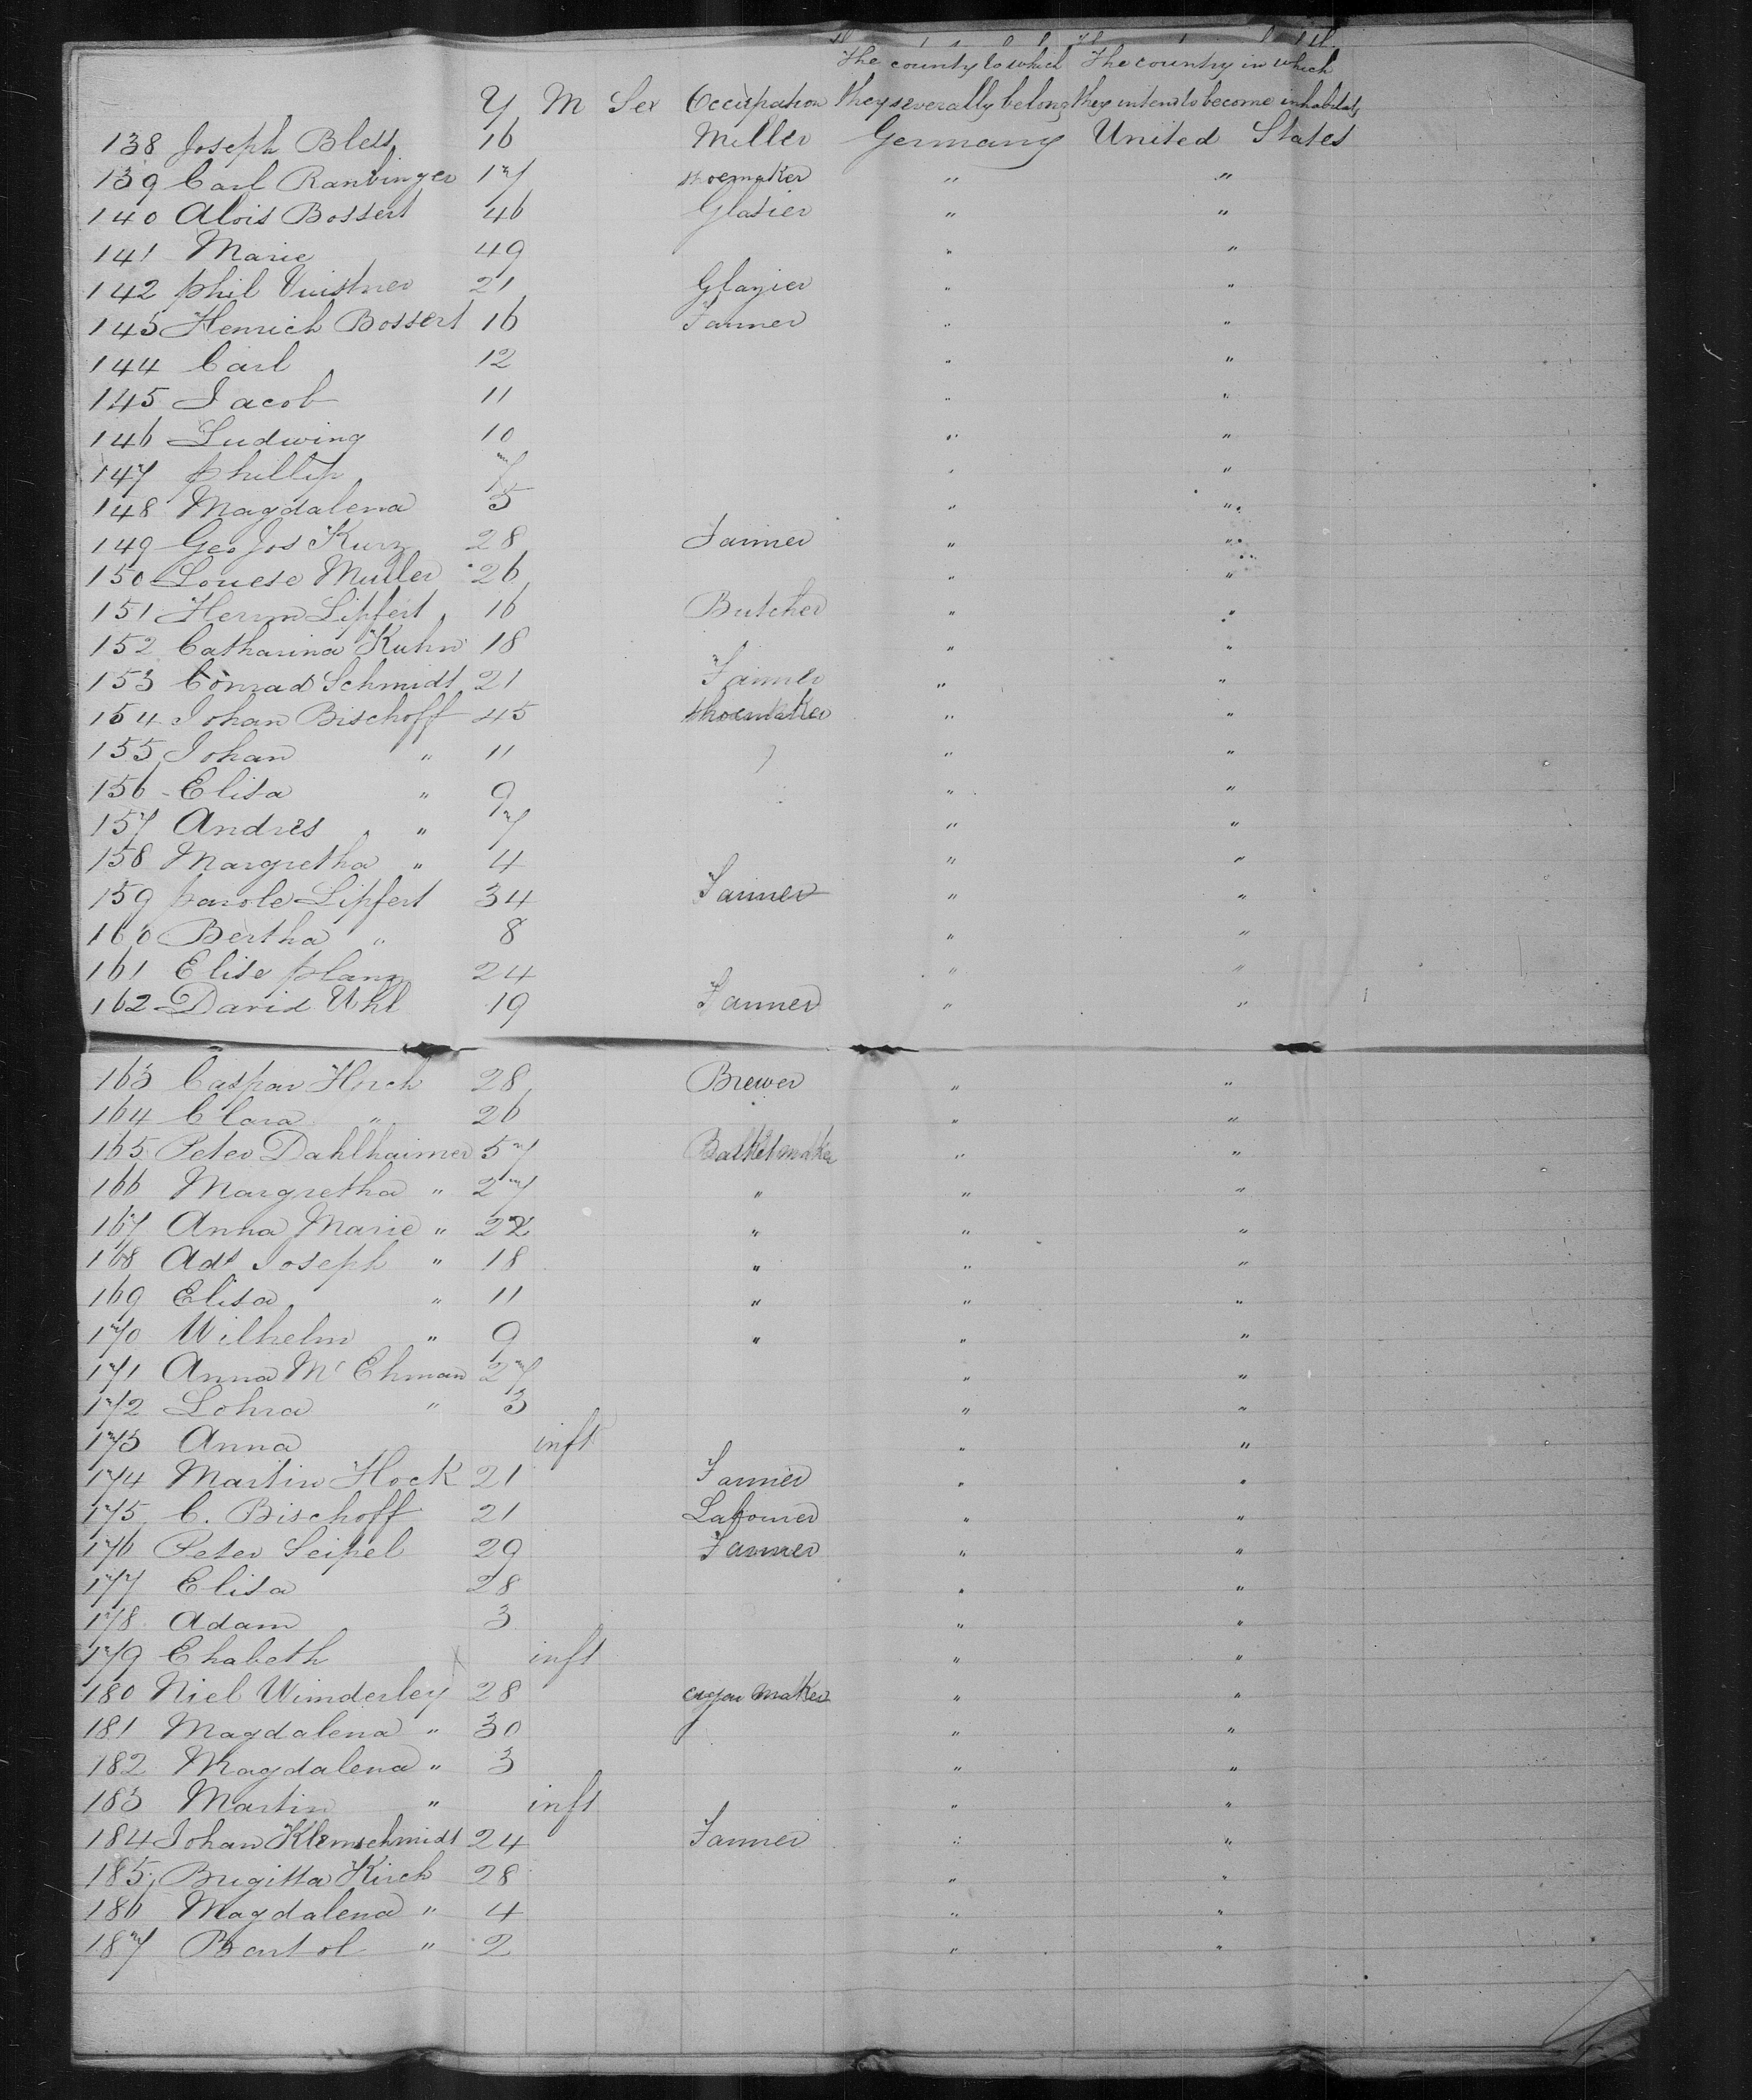 The county to which The country in which
Y M Sex Occupation they severally belong they intend to become inhabitats
138 Joseph Bless 16 Miller Germany United States
139 Carl Ranbinger 17 shoemaker " "
140 Alois Bossert 46 Glasier " "
141 Marie 49 " "
142 phil 21 Glazier " "
143 Henrich Bossert 16 Farmer " "
144 Carl 12 " "
145 Jacob 11 " "
146 Ludwing 10 " "
147 phillip 7 " "
148 Magdalena 5 " "
149 Geo Jos Kurz 28 Farmer " "
150 Louese Muller 26 " "
151 Herrm Lipfert 16 Butcher " "
152 Catharina Kuhn 18 " "
153 Conrad Schmidt 21 Farmer " "
154 Johan Bischoff 45 shoemaker " "
155 Johan " 11 " "
156 Elisa " 9 " "
157 Andres " 7 " "
158 Margretha " 4 " "
159 Lipfert 34 Farmer " "
160 Bertha " 8 " "
161 Elise planz 24 " "
162 David Uhl 19 Farmer " "
163 Caspar Hirch 28 Brewer " "
164 Clara " 26 " "
165 Peter Dahlhaimer 57 Basketmaker " "
166 Margretha " 27 " " "
167 Anna Marie " 22 " " "
168 Adt Joseph " 18 " " "
169 Elisa " 11 " " "
170 Wilhelm " 9 " " "
171 Anna Mc Ehman 27 " "
172 Lohra " 3 " "
173 Anna inft " "
174 Martin Hock 21 Farmer " "
175 C. Bischoff 21 Labourer " "
176 Peter Seipel 29 Farmer " "
177 Elisa 28 " "
178 Adam 3 " "
179 Ehabeth inft " "
180 Niel Wimderley 28 maker " "
181 Magdalena " 30 " "
182 Magdalena " 3 " "
183 Martin " inft " "
184 Johan Klemschmidt 24 Farmer " "
185 Brigitta Kirch 28 " "
186 Magdalena " 4 " "
187 Bartol " 2 " "